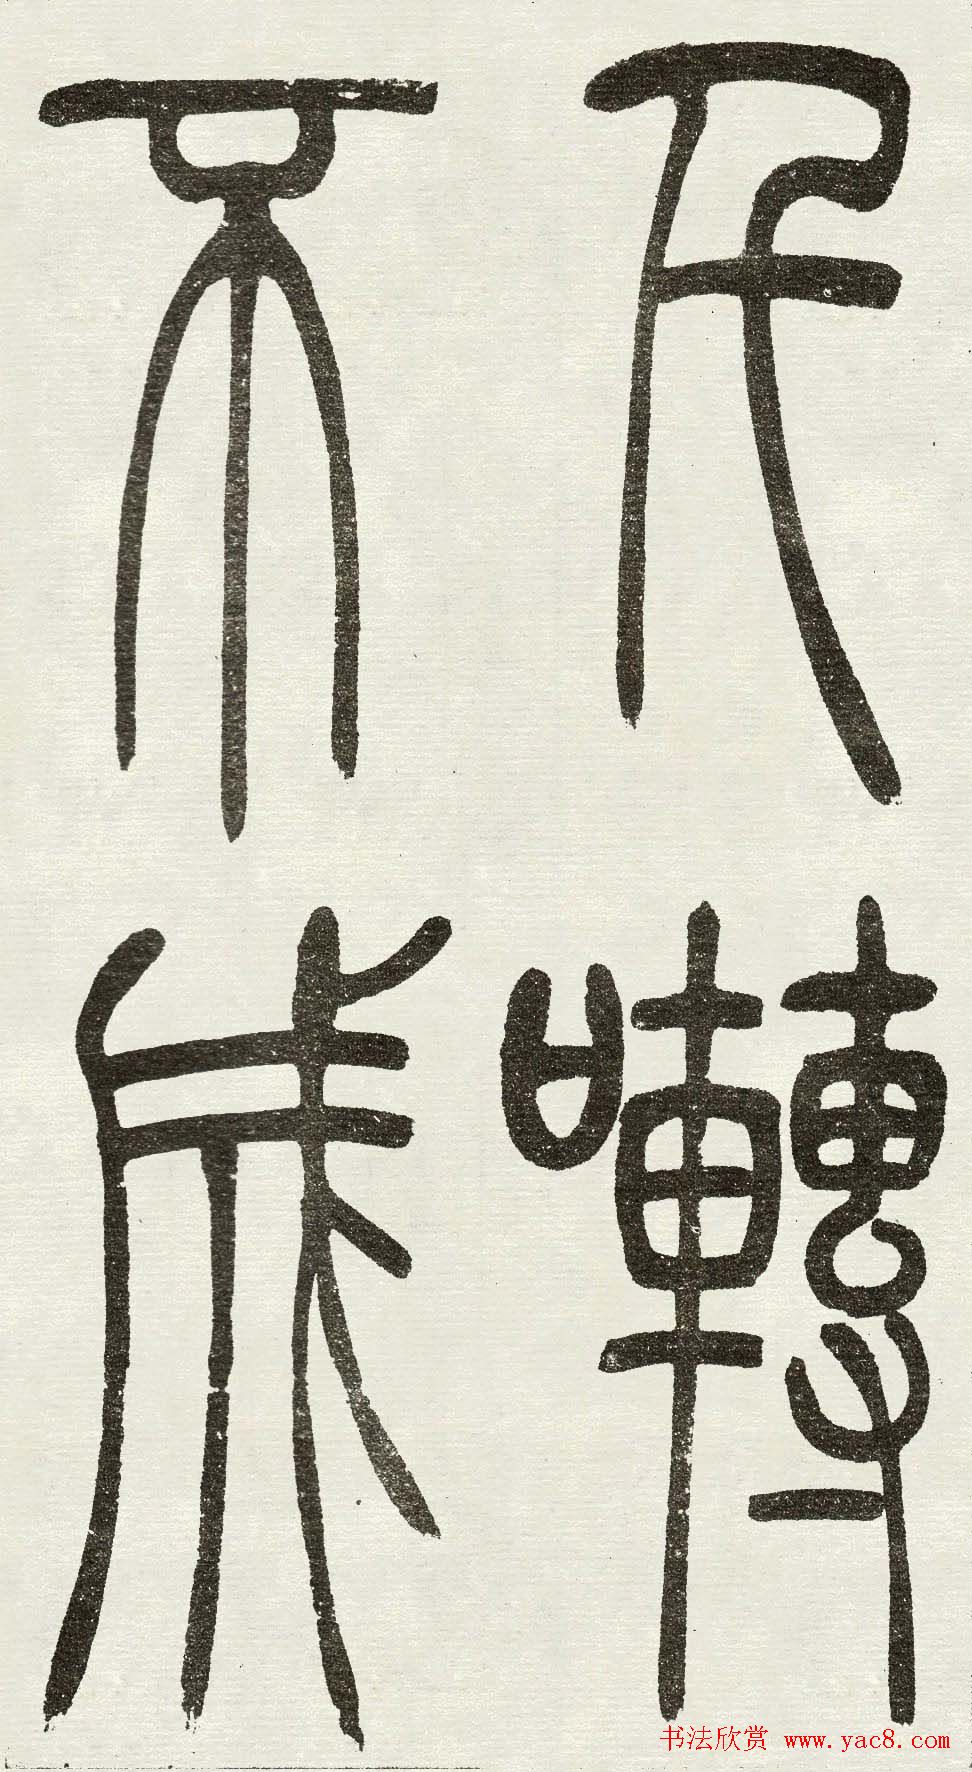 凡囀
不成
书法欣赏 www.yac8.com